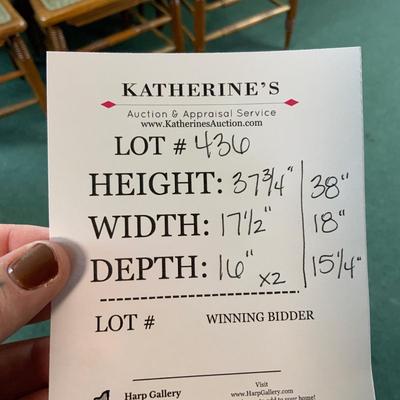 KATHERINE'S
Auction & Appraisal Service
www.KatherinesAuction.com
LOT # 436
HEIGHT: 37 3/4" 38"
WIDTH: 17 1/2" 18"
DEPTH: 16" x2 15 1/4"
LOT # WINNING BIDDER
Harp Gallery
Visit
www.HarpGallery.com
to your home!